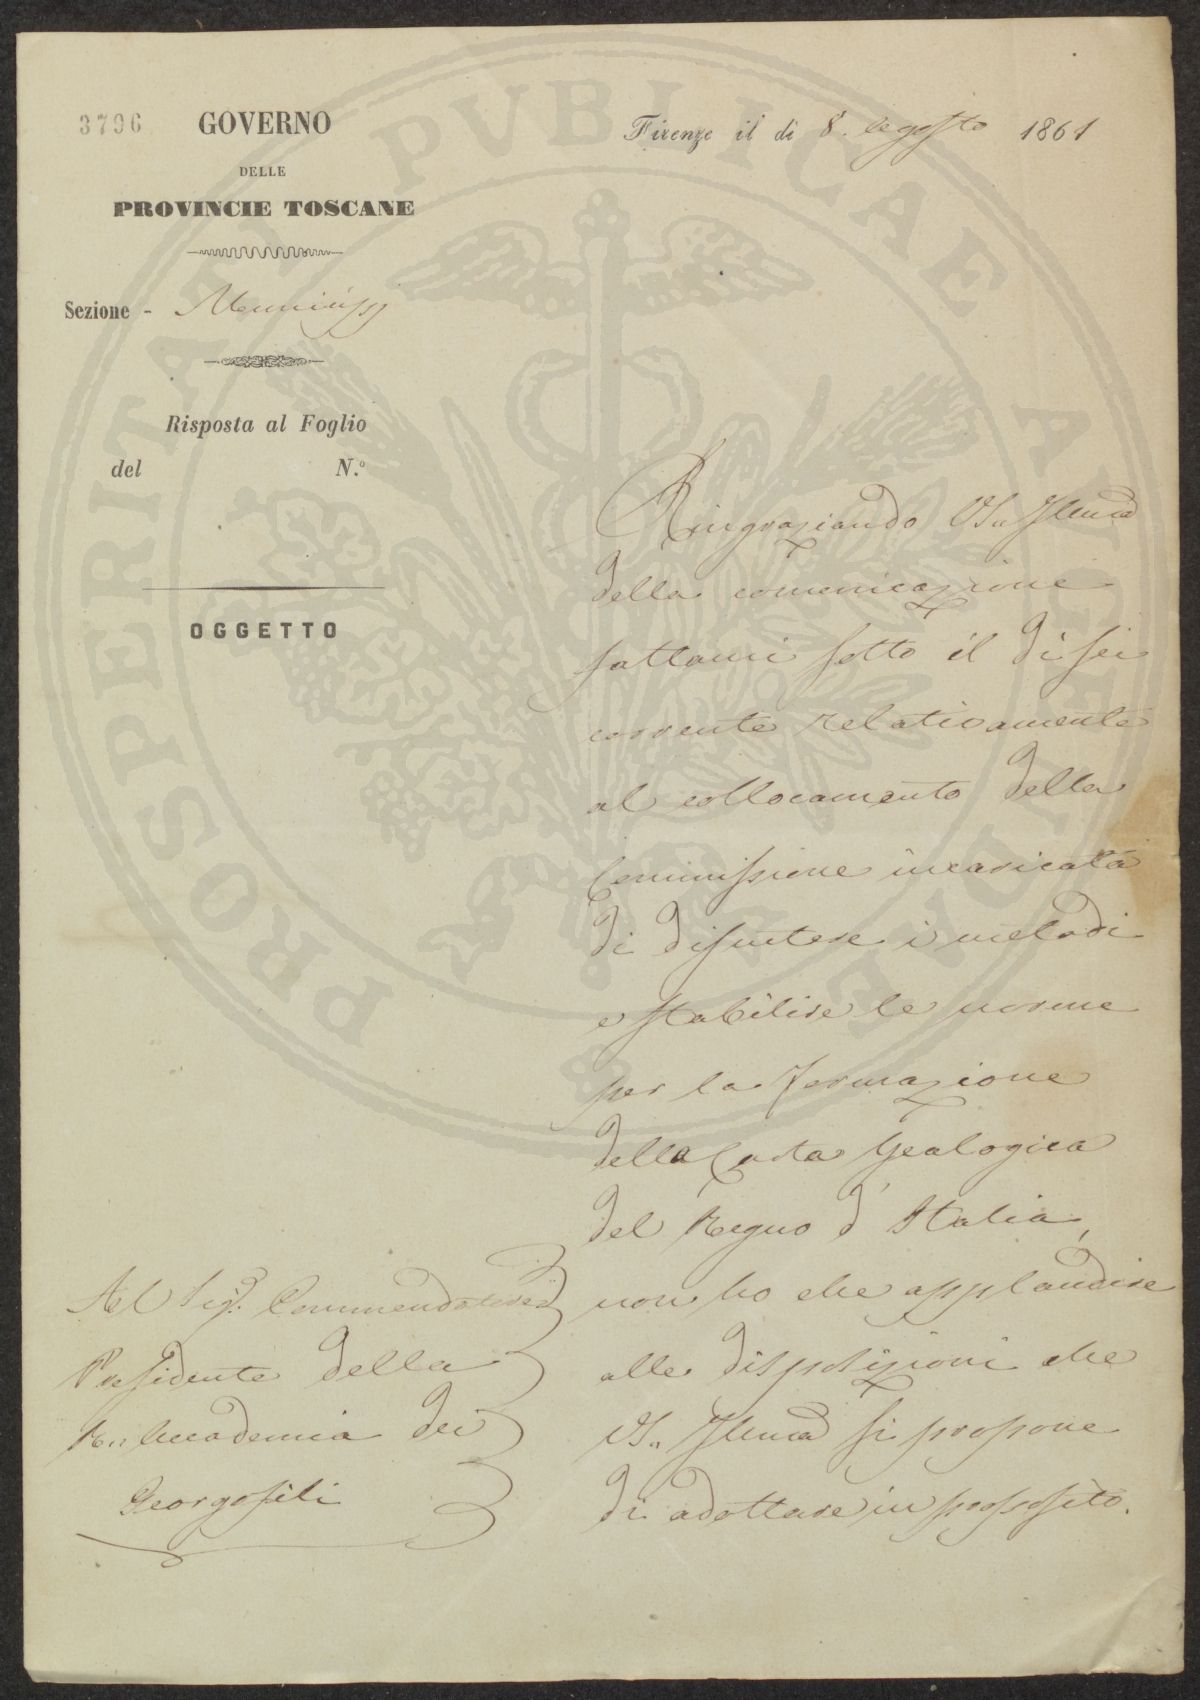 3796
GOVERNO
DELLE
PROVINCIE TOSCANE
Firenze il dì 8. Agosto 1861
Sezione -
Risposta al Foglio
del N.º
OGGETTO
Ringraziando VS. Illma
della comunicazione
fattami sotto il dì sei
corrente relativamente
al collocamento della
Commissione incaricata
di discutere i metodi
e stabilire le norme
per la formazione
della Carta Geologica
del Regno d'Italia,
non ho che applaudire
alle disposizioni che
VS. Illma si propone
di adottare in proposito.
Al Sigr. Commendatore
Presidente della
R. Accademia dei
Georgofili
PROSPERITATI PVBLICAE AVGENDAE